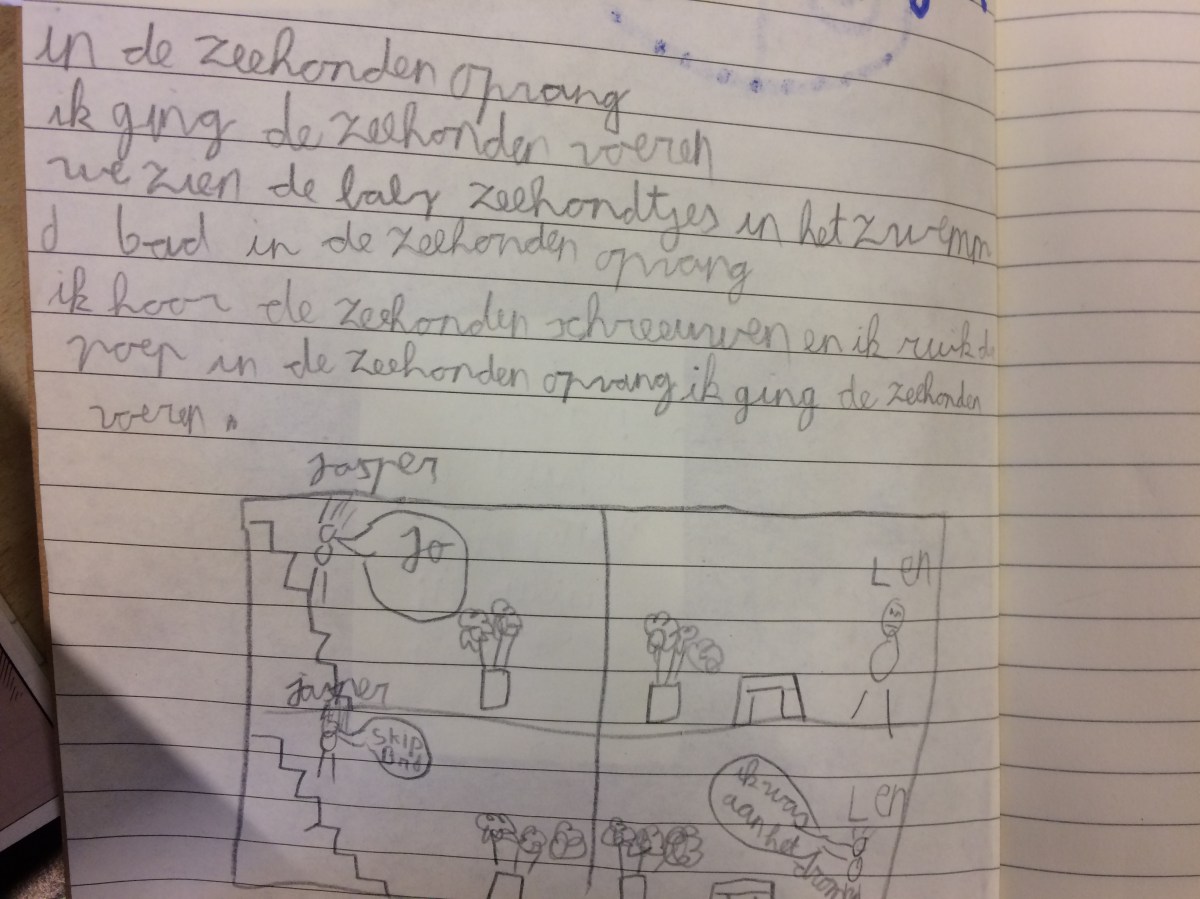 in de zeehonden opvang
ik ging de zeehonden voeren
we zien de baby zeehondtjes in het zwemm
d bad in de zeehonden opvang
ik hoor de zeehonden schreeuwen en ik ruik de
poep in de zeehonden opvang ik ging de zeehonden
voeren.
Jasper
Jo
Len
Jasper
Skip
Len
ik was
aan het